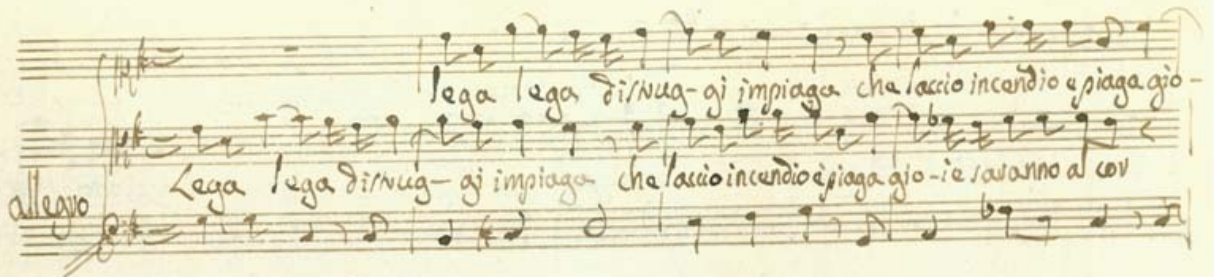 lega lega distrug-gi impiaga che laccio incendio e piaga gio-
Lega lega distrug-gi impiaga che laccio incendio è piaga gio-ie saranno al cor
allegro